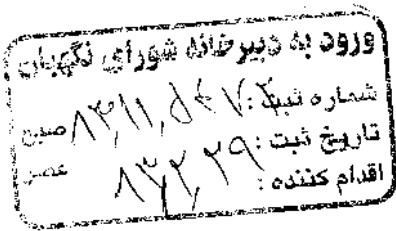 ورود به دبیرخانه شورای نگهبان
شماره ثبت: صبح
تاریخ ثبت: ۸۳,۲,۲۹ عصر
اقدام کننده: